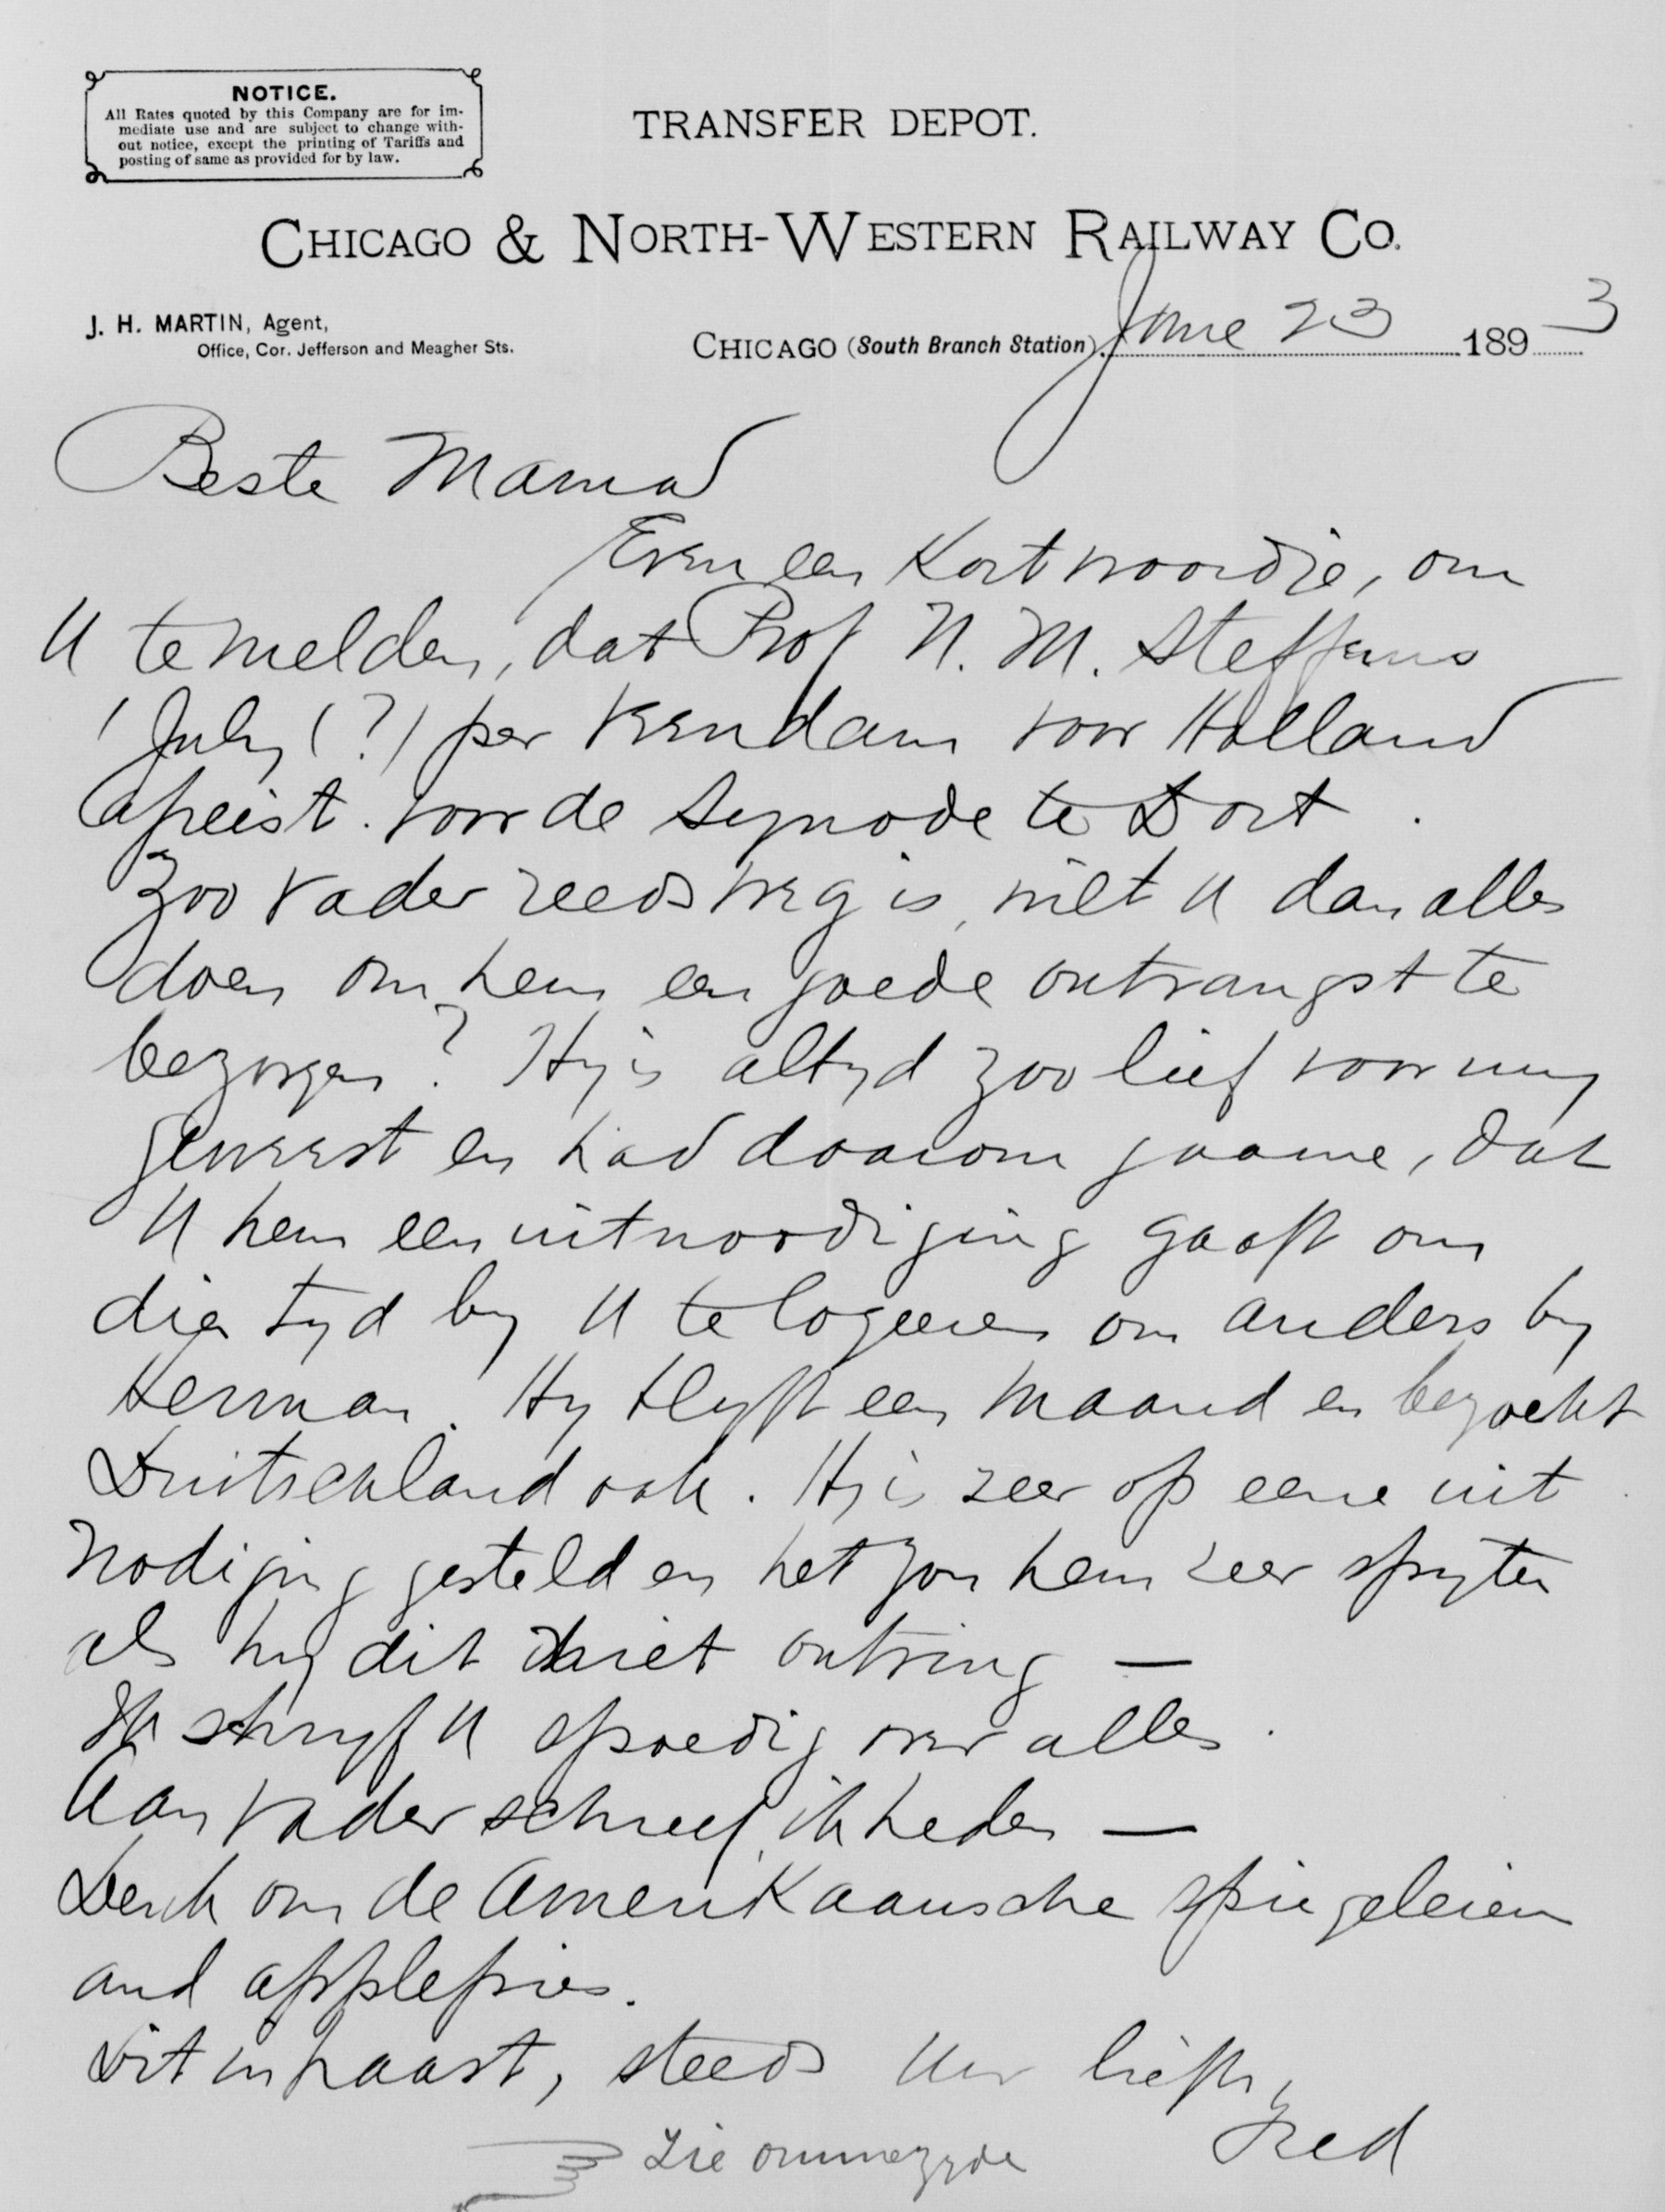 NOTICE.
All Rates quoted by this Company are for im-
mediate use and are subject to change with-
out notice, except the printing of Tariffs and
posting of same as provided for by law.
TRANSFER DEPOT.
CHICAGO & NORTH-WESTERN RAILWAY CO.
J. H. MARTIN, Agent,
Office, Cor. Jefferson and Meagher Sts.
CHICAGO (South Branch Station) June 23 1893
Beste Mama
Even een kort woordje, om
U te melden, dat Prof N. M. Steffens
1 July (?) per Veendam voor Holland
afreist. voor de Synode te Dort.
Zoo Vader reeds weg is, wilt U dan alles
doen om hem een goede ontvangst te
bezorgen? Hy is altyd zoo lief voor my
geweest en had daarom gaarne, dat
U hem een uitnoodiging gaaft om
dien tyd by U te logeeren om anders by
Herman. Hy blyft een maand en bezoekt
Duitschland ook. Hy is zeer op eene uit
nodiging gesteld en het zou hem zeer spyten
als hy dit niet ontving —
Ik schryf U spoedig over alles.
Aan Vader schreef ik heden —
Denk om de Amerikaansche spiegeleien
and applepies.
Dit in haast, steeds Uw liefh,
Fred
Zie ommezyde